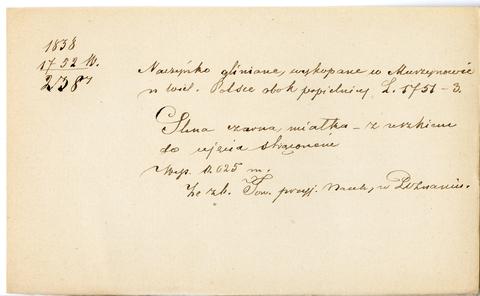 1838
1752 W.
2/387
Naczyńko gliniane, wykopane w Murzynowie
w wiel. Polsce obok popielnicy L. 1751-3.
Glina czarna, miałka - z uszkiem
do ujęcia strąconem
Wys. 0.025 m.
Ze zb. Tow. przyj. Nauk, w Poznaniu.